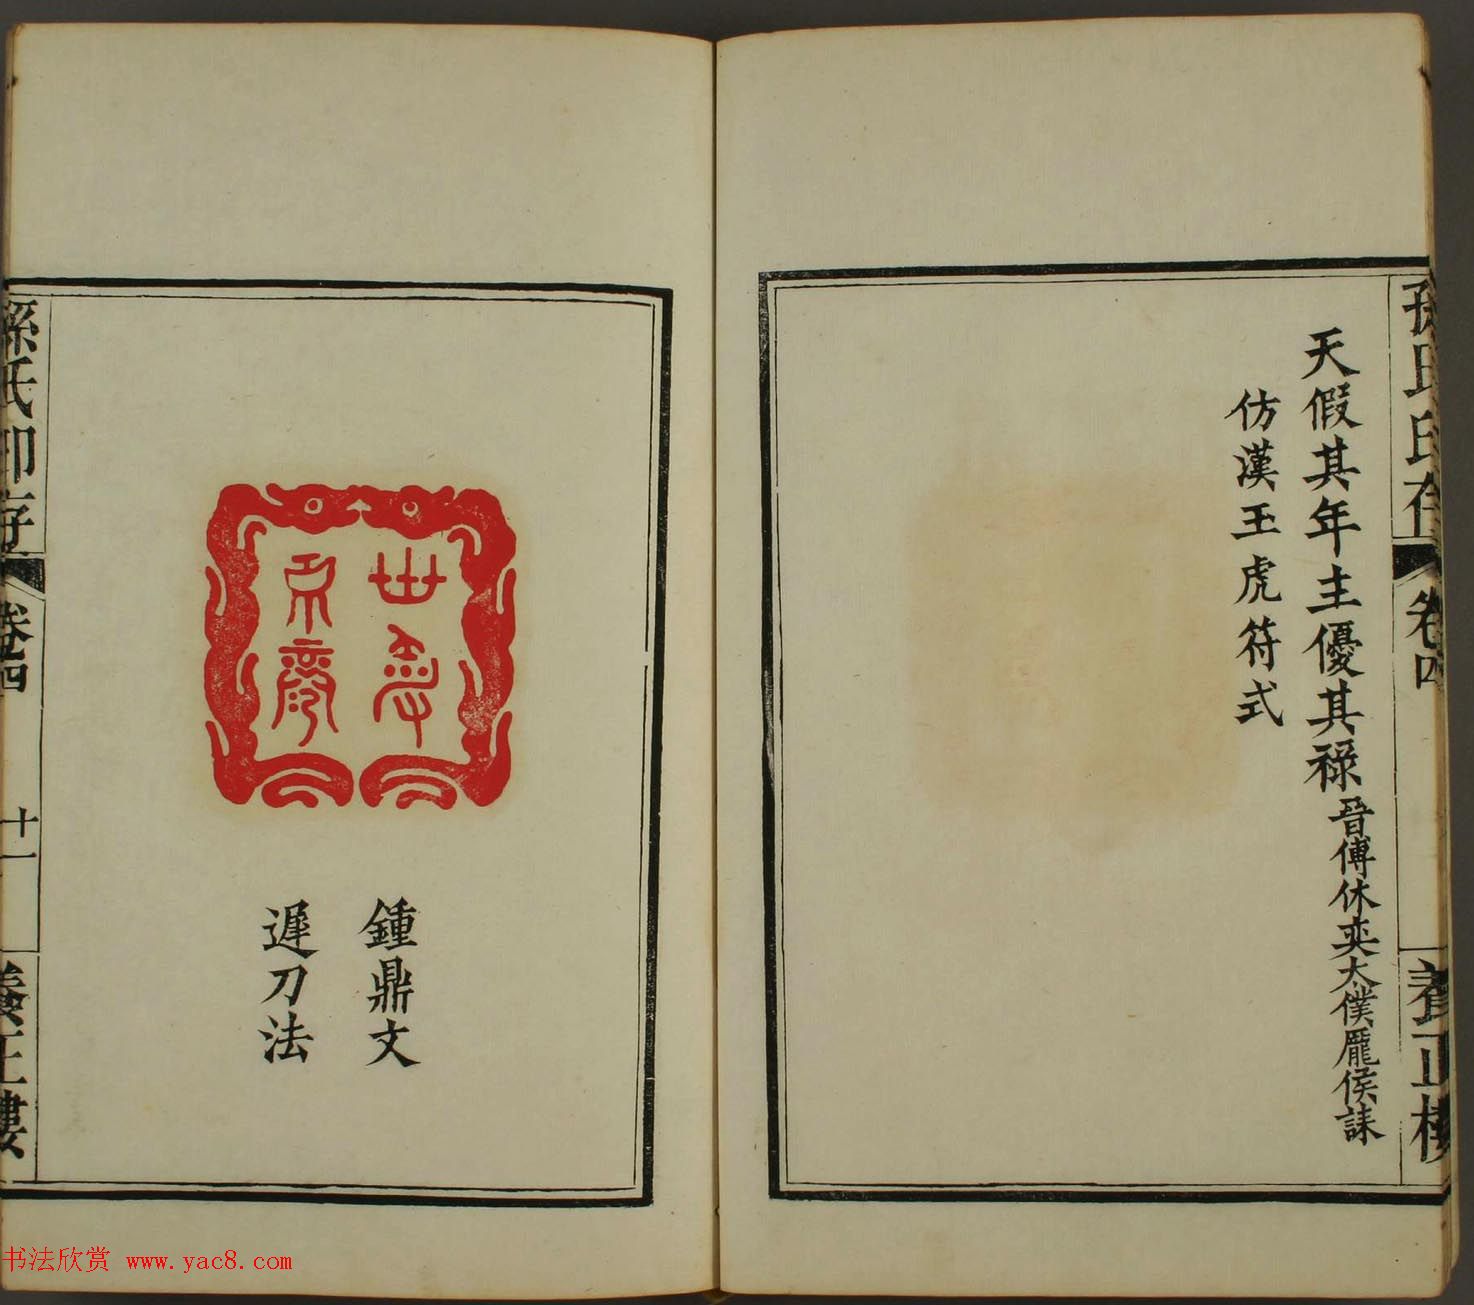 孫氏印存
卷四
養正樓
天假其年主優其祿晉傅休奕太僕龐侯誄
仿漢玉虎符式
鍾鼎文
遲刀法
孫氏印存
卷四
十一
養正樓
书法欣赏 www.yac8.com